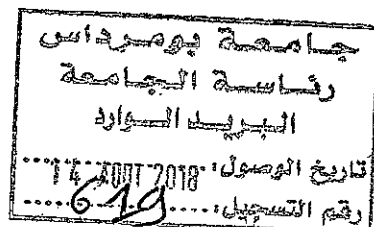 جامعة بومرداس
رئاسة الجامعة
البريد الوارد
تاريخ الوصول: 14 AOUT 2018
رقم التسجيل: 619